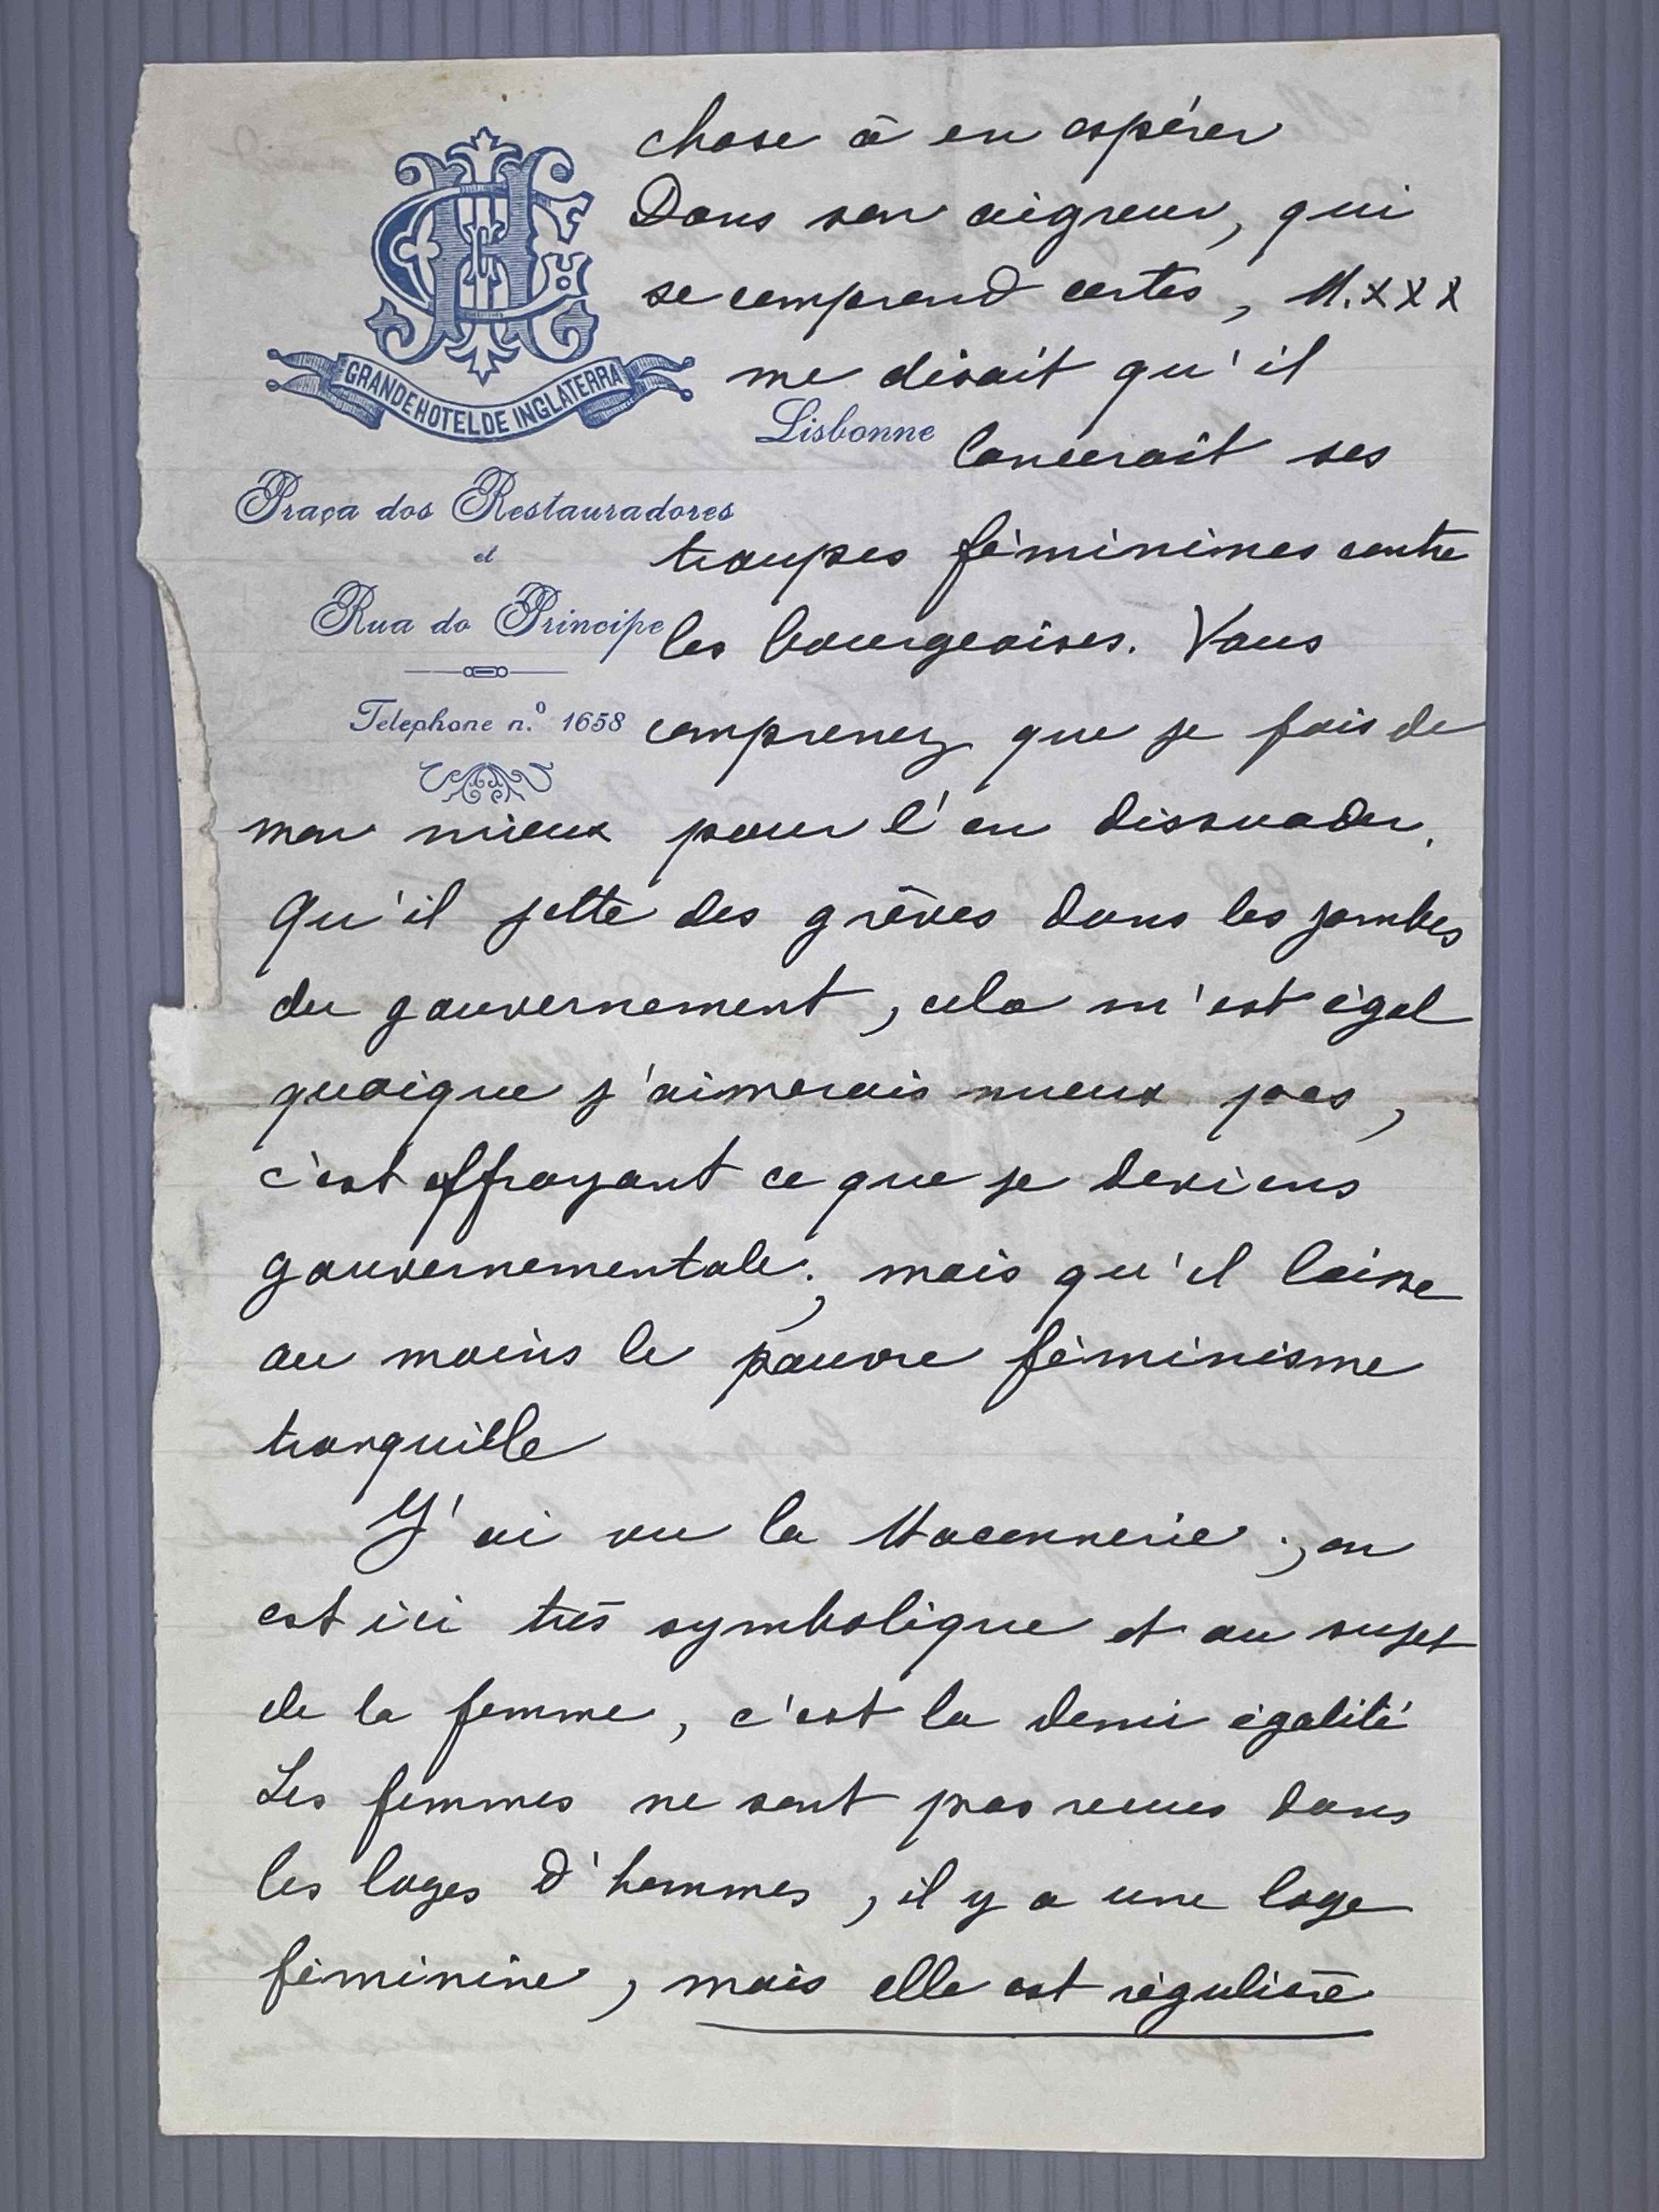 chose à en espérer
Dans son aigreur, qui
se comprend certes, M. XXX
me disait qu'il
GRANDE HOTEL DE INGLATERRA
Lisbonne
lancerait ses
Praça dos Restauradores
et
troupes féminines contre
Rua do Principe
les bourgeoises. Vous
Telephone n.º 1658
comprenez que je fais de
mon mieux pour l'en dissuader.
Qu'il jette des grèves dans les jambes
du gouvernement, cela m'est égal
quoique j'aimerais mieux pas,
c'est effrayant ce que je deviens
gouvernementale; mais qu'il laisse
au moins le pauvre féminisme
tranquille
J'ai vu la Maconnerie; on
est ici très symbolique et au sujet
de la femme, c'est la demi égalité
Les femmes ne sont pas recues dans
les loges d'hommes, il y a une loge
féminine, mais elle est régulière